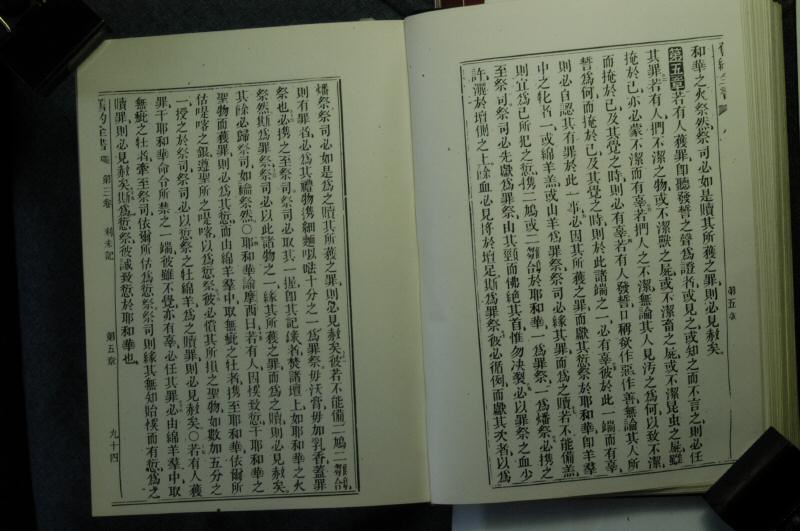 和華之火祭然祭司必如是贖其所獲之罪則必見赦矣
第五章若有人獲罪卽聽發誓之聲爲證者或見之或知之而不言之則必任
其罪若有人捫不潔之物或不潔獸之屍或不潔畜之屍或不潔昆虫之屍雖
掩於己亦必蒙不潔而有辜若有人捫人之不潔無論其人見汚之爲何以致不潔
而掩於己及其覺之時則必有辜若有人發誓口稱欲作惡作善無論其人所
誓爲何而掩於己及其覺之時則於此諸端之一必有辜彼於此一端而有辜
則必自認其有罪於此一事必因其所獲之罪而獻其愆祭於耶和華卽羊羣
中之牝者一或綿羊羔或由羊爲罪祭祭司必緣其罪而爲之贖若不能備羔
則宜爲己所犯之愆携二鳩或二雛鴿於耶和華一爲罪祭一爲燔祭必携之
至祭司祭司必先獻爲罪祭由其頸而拂絶其首惟勿决裂必以罪祭之血少
許灑於壇側之上餘血必見搾於壇足斯爲罪祭彼必循例而獻其次者以爲
第五章
燔祭祭司必如是爲之贖其所獲之罪則必見赦矣彼若不能備二鳩二雛鴿
則有罪者必爲其禮物携細麵以咕十分之一爲罪祭毋沃膏毋加乳香蓋罪
祭也必携之至祭司祭司必取其一握卽其記條者焚諸壇上如耶和華之火
祭然斯爲罪祭祭司必以此諸物之一緣其所獲之罪而爲之贖則必見赦矣
其餘必歸祭司如餙祭然〇耶和華諭摩西曰若有人因悞致愆干耶和華之
聖物而獲罪則必爲其愆而由綿羊羣中取無疵之牡者携至耶和華依爾所
估爲㖿喀之銀遵聖所之㖿喀以爲愆祭彼必償其所損之聖物如數加五分之
一授之於祭司祭司必以愆祭之牡綿羊爲之贖罪則必見赦矣〇若有人獲
罪干耶和華命令所禁之一端彼雖不覺亦有辜必任其罪必由綿羊羣中取
無疵之牡者牽至祭司依爾所估爲愆祭祭司則緣其無知貽悞而有愆爲之
贖罪則必見赦矣斯爲愆祭彼誠致愆於耶和華也
第三卷 利未記 第五章 九十四